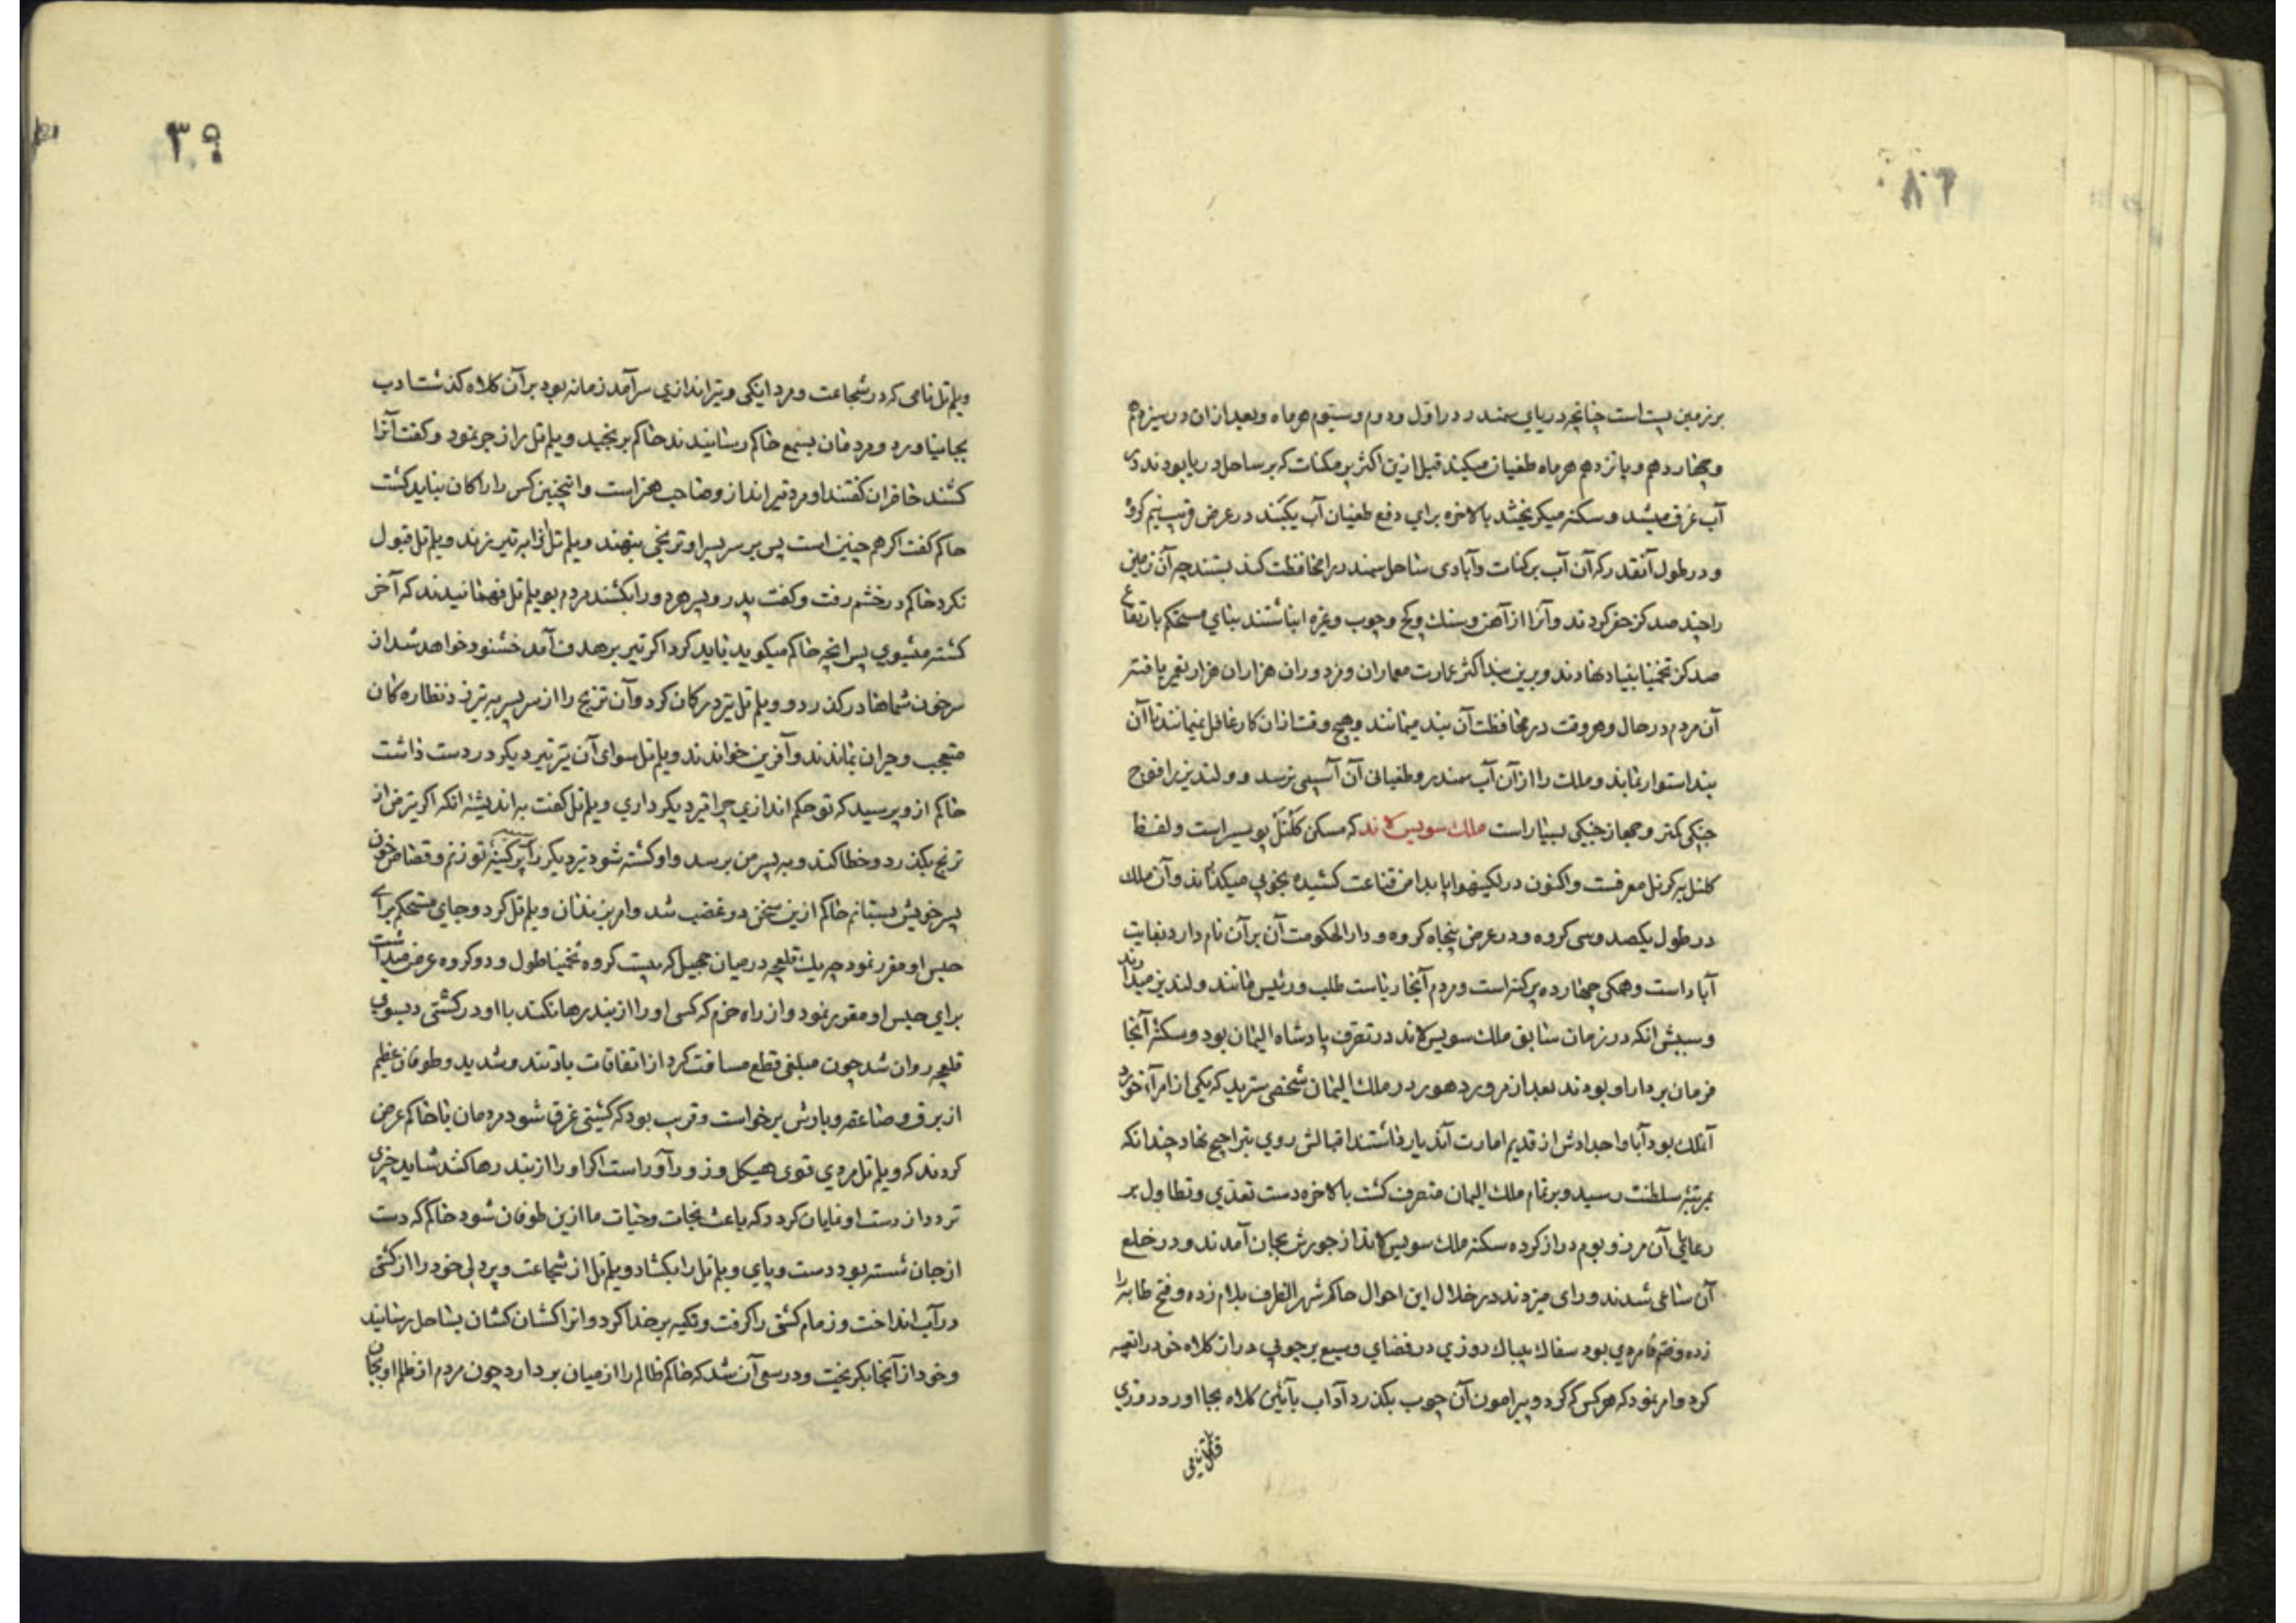 ۸۶
بر زمین پست است چنانچه دریای سمندر در اول و دوم و سیوم هر ماه و بعد ازان در سیزدهم
و چهاردهم و پانزدهم هر ماه طغیان میکند قبل ازین اکثر پرمکنات که بر ساحل دریا بودند در
آب غرق میشد و سکنه میکریختند بالاخره برای دفع طغیان آب یکبند در عرض قریب نیم کروه
و در طول آنقدر که آن آب پرکنات و آبادی ساحل سمندر را محافظت کند بستند چه آن زمین
را چند صد کز حفر کردند و آنرا از آهن و سنک و کچ و چوب و غیره انباشتند بنای مستحکم بارتفاع
صد کز تخمینا بنیاد نهادند و برین بند اکثر عمارت معماران و مزدوران هزاران هزار تعمیر یافته
آن مردم در حال و هر وقت در محافظت آن بند میمانند و هیچ وقت ازان کار غافل نمیمانند تا آن
بند استوار بماند و ملک را از آن آب سمندر و طغیانی آن آسیبی نرسد و ولندیز را فوج
جنکی کمتر و جهاز جنکی بسیار است ملک سویس لاند که مسکن کلنل پویسر است و لفظ
کلنل به کرنل معرفست و اکنون در لکهنو پا بدامن قناعت کشیده بخوبی میکذراند و آن ملک
در طول یکصد و سی کروه و در عرض پنجاه کروه و دار الحکومت آن بر آن نام دارد بنهایت
آباد است و همکی چهارده پرکنه است و مردم آنجا ریاست طلب و رئیس مانند ولندیز میدارند
و سببش انکه در زمان سابق ملک سویس لاند در تصرف پادشاه الیمان بود و سکنه آنجا
فرمان بردار او بودند بعد از مرور دهور در ملک الیمان شخصی رسید که یکی از امرآء خورد
آنملک بود آبا و اجدادش از قدیم امارت آن دیار داشتند اقبالش روی بتراجیح نهاد چندانکه
بمرتبه سلطنت رسید و بر تمام ملک الیمان متصرف کشت بالاخره دست تعدّی و تطاول بر
رعایای آن مرز و بوم دراز کرده سکنه ملک سویس لاند از جورش بجان آمدند و در خلع
آن ساعی شدند و رای میزدند در خلال این احوال حاکم شهر
زده و مردی بود سفاک بیباک روزی در فضای وسیع بر چوبی دراز کلاه خود را تعبیه
کرد و امر نمود که هر کس که کرد و پیرامون آن چوب بکذرد آداب بآئین کلاه بجا اورد روزی
۳۹
ویلم تل نامی که در شجاعت و مردانکی و تیراندازی سرآمد زمانه بود بر آن کلاه کذشت ادب
بجا نیاورد و مردمان بسمع حاکم رسانیدند حاکم برنجید ویلم تل را زجر نمود و کفت آنرا
کشند حاضران کفتند او مرد تیرانداز و صاحب هنر است و اینچنین کس را رایکان نباید کشت
حاکم کفت اکر هم چنین است پس بر سر پسر او ترنجی بنهند ویلم تل آنرا به تیر بزند ویلم تل قبول
نکرد حاکم در خشم رفت و کفت پدر و پسر هر دو را بکشند مردم بویلم تل فهمانیدند که آخر
کشته میشوی پس انچه حاکم میکوید باید کرد اکر تیر بر هدف آمد خشنود خواهد شد از
سر خون شماها در کذرد و ویلم تل تیر در کمان کرد و آن ترنج را از سر پسر به تیر زد نظاره کان
متعجب و حیران بماندند و آفرین خواندند ویلم تل سوای آن تیر تیر دیکر در دست داشت
حاکم از و پرسید که تو حکم اندازی چرا تیر دیکر داری ویلم تل کفت به اندیشه انکه اکر تیر من از
ترنج بکذرد و خطا کند و به پسر من برسد و او کشته شود تیر دیکر را بر سینه تو زنم و قصاص خون
پسر خویش بستانم حاکم ازین سخن در غضب شد و امر بزندان ویلم تل کرد و جای مستحکم برای
حبس او مقرر نمود چه یک قلعچه درمیان جهیل که بیست کروه تخمینا طول و دو کروه عرض میداشت
برای حبس او مقرر نمود و از راه حزم که کسی او را از بند رها نکند با او در کشتی بسوی
قلعچه روان شد چون مبلغی قطع مسافت کرد از اتفاقات باد تند و شدید و طوفان عظیم
از برق و صاعقه و بارش برخواست و قریب بود که کشتی غرق شود مردمان با حاکم عرض
کردند که ویلم تل مردی قوی هیکل و زور آور است اکر او را از بند رها کنند شاید چیزی
تردد از دست او نمایان کردد که باعث نجات و حیات ما ازین طوفان شود حاکم که دست
از جان شسته بود دست و پای ویلم تل را بکشاد ویلم تل از شجاعت و پردلی خود را از کشتی
در آب انداخت و زمام کشتی را کرفت و تکیه بر خدا کرد و انرا کشان کشان بساحل رسانید
و خود از آنجا بکریخت و در سعی آن شد که حاکم ظالم را از میان بردارد چون مردم از ظلم او بجان